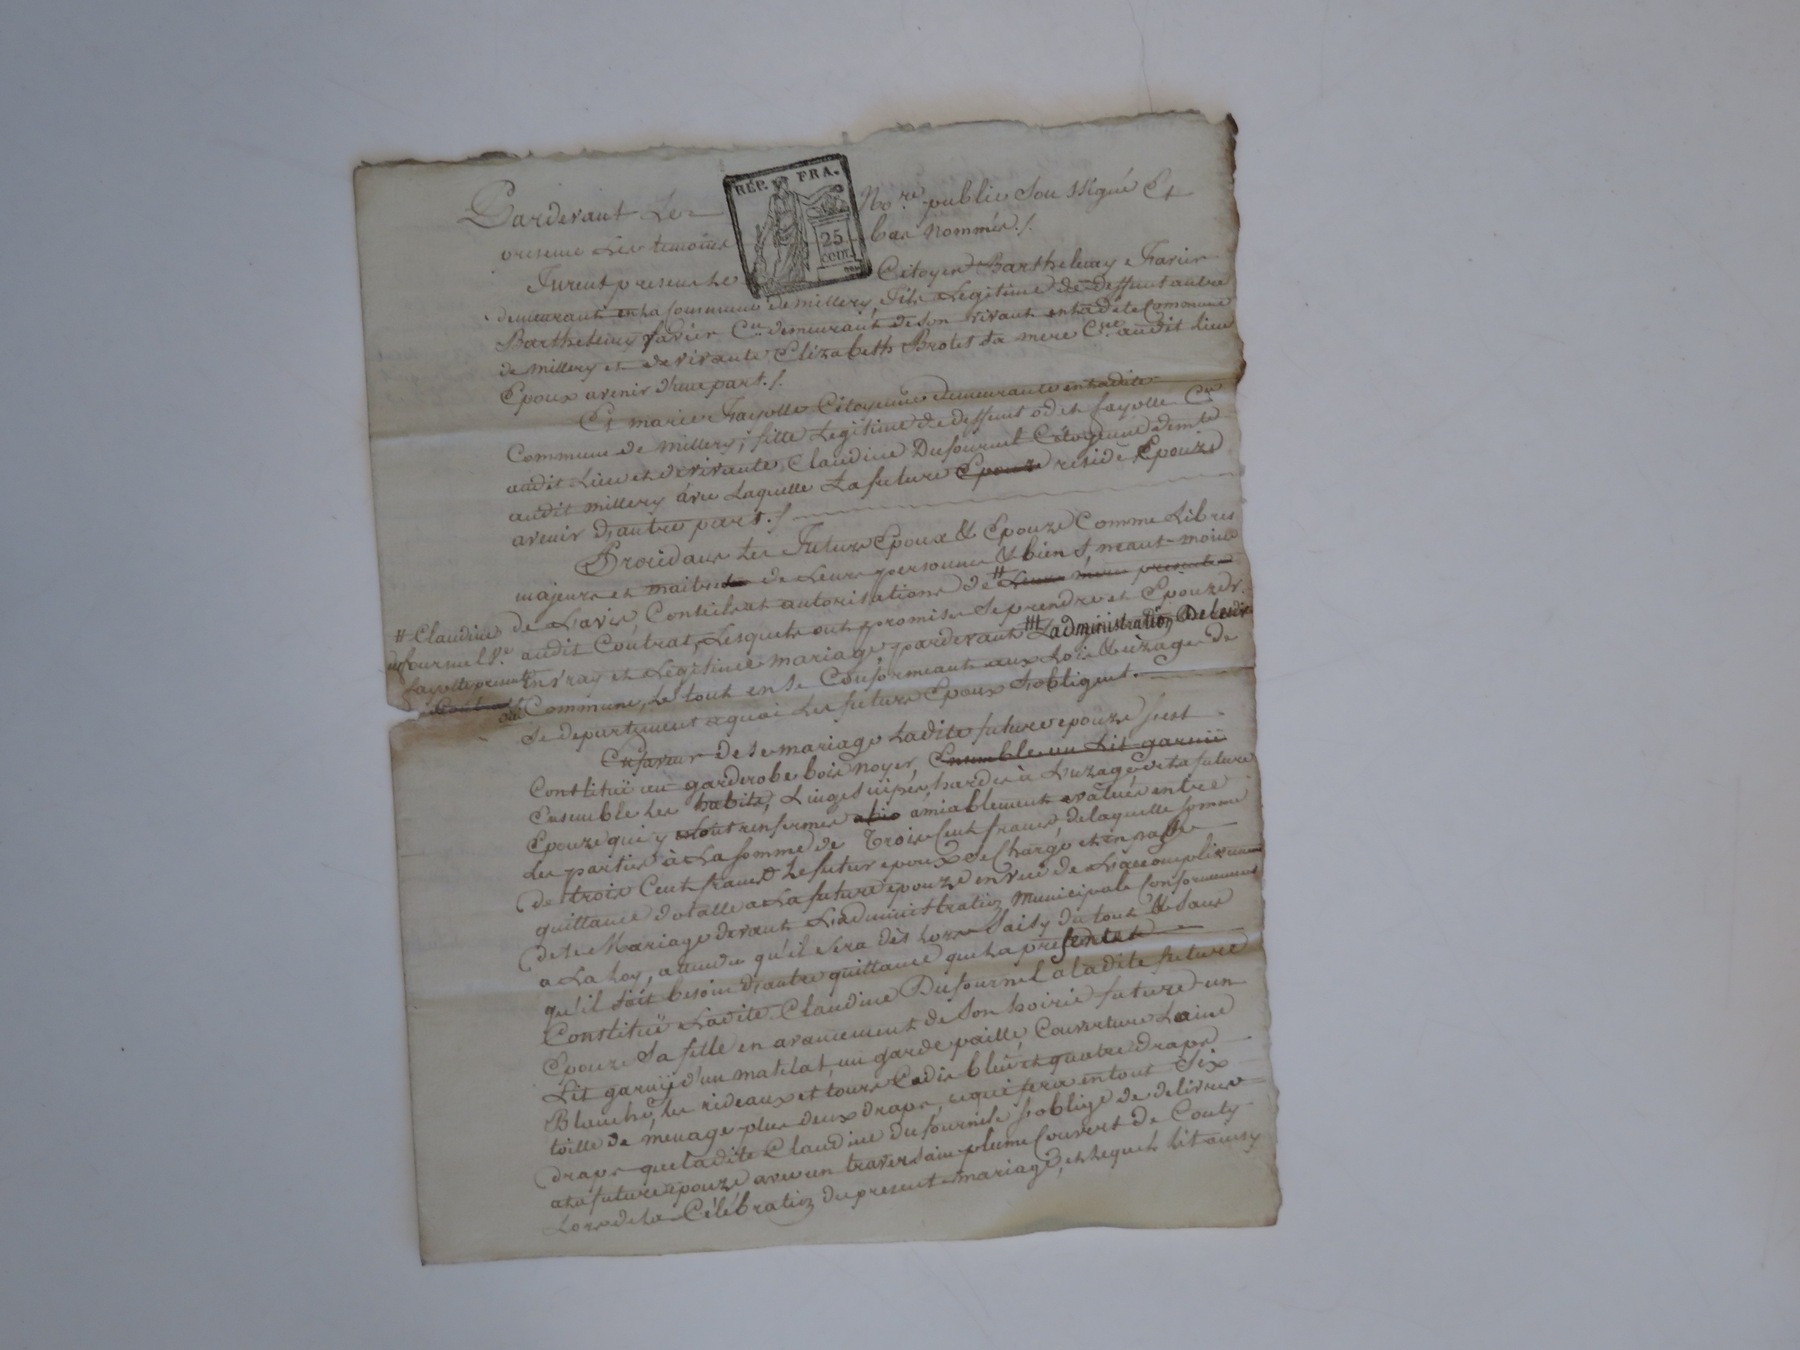 Pardevant Les No.re public Soussigné Et
presence Les temoins bas Nommés ./.
RÉP. FRA.
25
cent.
Furent presents Le Citoyen Barthelemy Favier
demeurant en La Commune de millery, fils Legitime de deffunt autre
Barthelemy favier C.n demeurant de son vivant en ladite Commune
de millery et de vivante Elizabeth Brotet sa mere C.ne audit lieu
Epoux avenir d'une part ./.
Et marie Fayolle Citoyenne demeurante en ladite
Commune de millery, fille Legitime de deffunt odet fayolle C.en
audit Lieu et de vivante Claudine Dufournel Citoyenne demte
audit millery avec Laquelle La future Epouze reside Epouze
avenir d'autre part ./.
Procedans Les Futurs Epoux & Epouze Comme Libres
majeurs et maitres de Leurs personnes & biens, neant-moins
de L'avis, Conseils et autorisations de # Leurs mere presente
# Claudine
dufournel V.e
fayolle presente
au
Contrat
audit Contrat, Lesquels ont promis se prendre et Epouzer
En vray et Legitime mariage pardevant ### L'administration De leur
Commune, Le tout en se Conformeant aux Lois & uzages de
se departement a quoi Les futurs Epoux s'obligent.
En faveur de se mariage Ladite future epouze s'est
Constitué un garderobe bois noyer, Ensemble un Lit garnii
Ensemble Les habits, Linges nipes hardes à L'uzage de La future
Epouze qui y sont renfermés amiablement evalués entre
Les parties à La somme de Trois Cent francs, de laquelle somme
de trois Cent francs Le futur epoux se Charge et en passe
quittance dotalle a La future epouze en vue de L'accomplissement
de se Mariage devant L'administration Municipale Conformement
a La Loy, attendu qu'il sera dès Lors Saisy du tout & Sans
qu'il soit besoin d'autre quittance que La presente
Constitue Ladite Claudine Dufournel a ladite future
Epouze Sa fille en avancement de son hoirie future un
Lit garny d'un matelat, un garde paille, Couverture Laine
Blanche, les rideaux et tours Cadis bleu et quatre draps
toille de menage plus deux draps, ce qui fera en tout Six
draps que ladite Claudine dufournel s'oblige de delivrer
a La future epouze avec un traversain plume Couvert de Couty
Lors de la Célébration du present mariage, et Lequel lit aussy